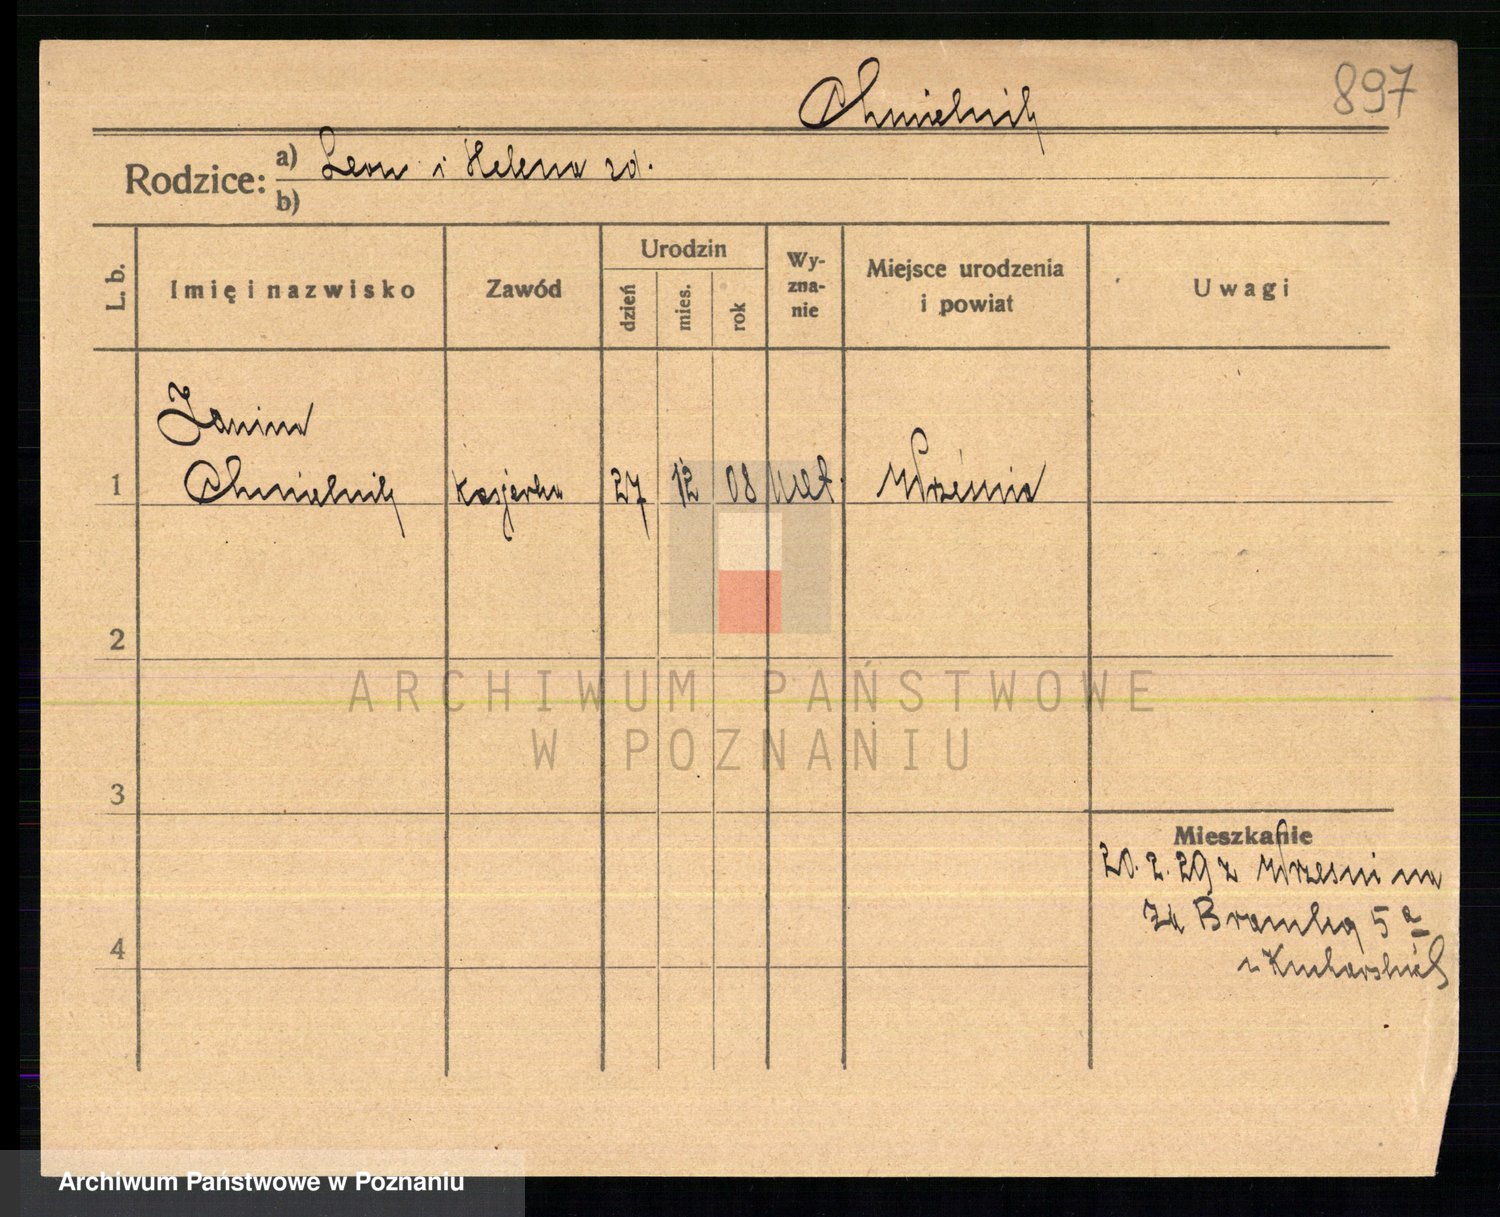 897
Chmielnik
Rodzice: a) Leon i Helena zd.
b)
L. b.
Imię i nazwisko
Zawód
Urodzin
dzień
mies.
rok
Wy-
zna-
nie
Miejsce urodzenia
i powiat
Uwagi
Janina
1 Chmielnik kasjerka 27 12 08 Września
2
3
4
Mieszkanie
20. 2. 29 z Wrześni na
Za Bramką 5 a
u Kucharskich
ARCHIWUM PAŃSTWOWE
W POZNANIU
Archiwum Państwowe w Poznaniu